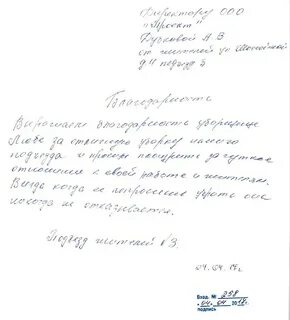 Директору ООО
"Проект"
Дурковой Н В
от жителей ул
д 11 подъезд 3
Благодарность
Выражаем благодарность уборщице
Любе за отличную уборку нашего
подъезда и просим поощрить за чуткое
отношение к своей работе и жителям.
Всегда когда ее попросишь убрать она
никогда не отказывается.
Подъезд жителей №3.
04.04.17г.
Вход. № 258
"04" 04 2017г.
подпись